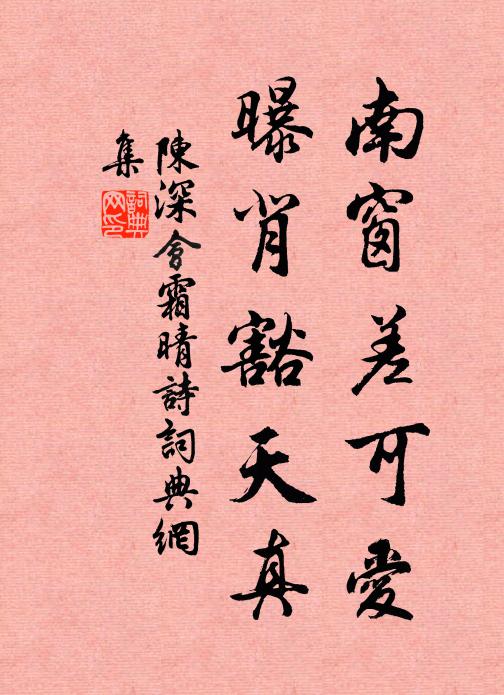 南窗差可愛
曝背豁天真
陳深會霜晴詩詞典網
集
詞典
网印